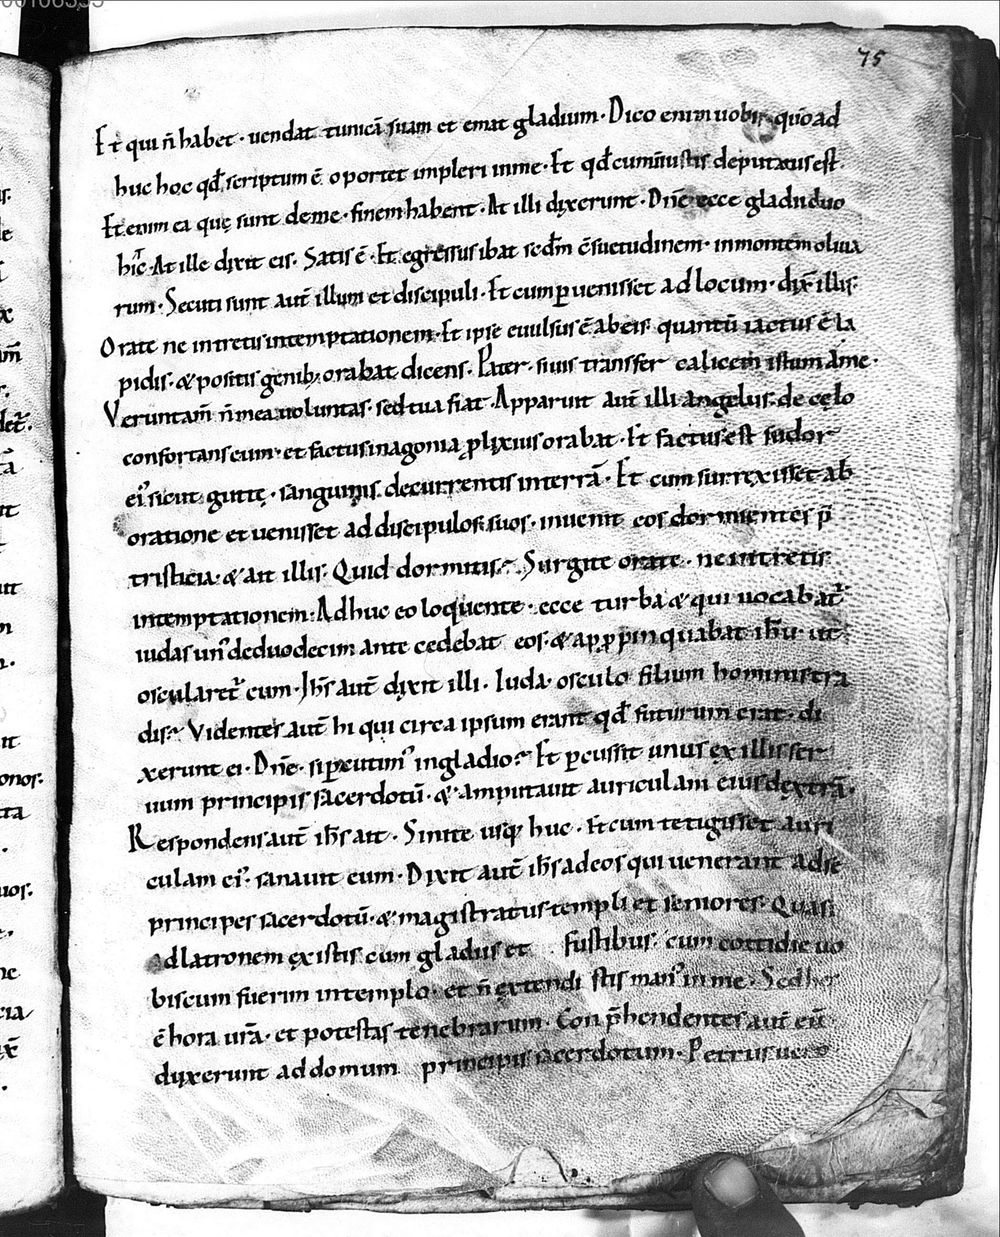 75
Et qui n̄ habet · uendat tunicā suam et emat gladium · Dico enim uobis · quō ad
huc hoc qd̄ scriptum ē oportet impleri inme · Et qd̄ cuminiustis deputatus est ·
Et enim ea quę sunt deme · finem habent · At illi dixerunt · Dn̄e ecce gladii duo
hic · At ille dixit eis · Satis ē · Et egressus ibat scdm̄ c̄suetudinem · inmontem oliua
rum · Secuti sunt aut̄ illum et discipuli · Et cum puenisset ad locum · dix̄ illis ·
Orate ne intretis intemptationem · Et ipse euulsus ē ab eis · quantū iactus ē la
pidis · & positis genib; orabat dicens · Pater · siuis transfer calicem istum Ame ·
Veruntam̄ n̄ mea uoluntas · sed tua fiat · Apparuit aut̄ illi angelus · de cęlo
confortans eum · et factus inagonia plixius orabat · Et factus est sudor
ei' sicut guttę · sanguinis decurrentis interrā · Et cum surrexisset ab
oratione et uenisset ad discipulos suos · inuenit eos dormientes p̄
tristicia · & ait illis · Quid dormitis? · Surgite orate · ne intretis
intemptationem · Adhuc eo loquente · ecce turba & qui uocabat̄
iudas un' deduodecim ante cedebat eos · & appinquabat ih̄u · ut
oscularet̄ eum · Ih̄s aut̄ dixit illi · Iuda · osculo filium hominis tra
dis? Videntes aut̄ hi qui circa ipsum erant qd̄ futurum erat · di
xerunt ei · Dn̄e · si pcutim' ingladio? Et pcussit unus ex illis ser
uum principis sacerdotū · & amputauit auriculam eius dextrā ·
Respondens aut̄ ih̄s ait · Sinite usq; huc · Et cum tetigisset auri
culam ei' · sanauit eum · Dixit aut̄ ih̄s adeos qui uenerant adse
principes sacerdotū · & magistratus templi et seniores · Quasi
adlatronem existis cum gladiis et fustibus · cum cottidie uo
biscum fuerim intemplo · et n̄ extendi stis man' inme · Sed hec
ē hora ur̄a · et potestas tenebrarum · Con p̄hendentes aut̄ eū
duxerunt addomum principis sacerdotum · Petrus uero